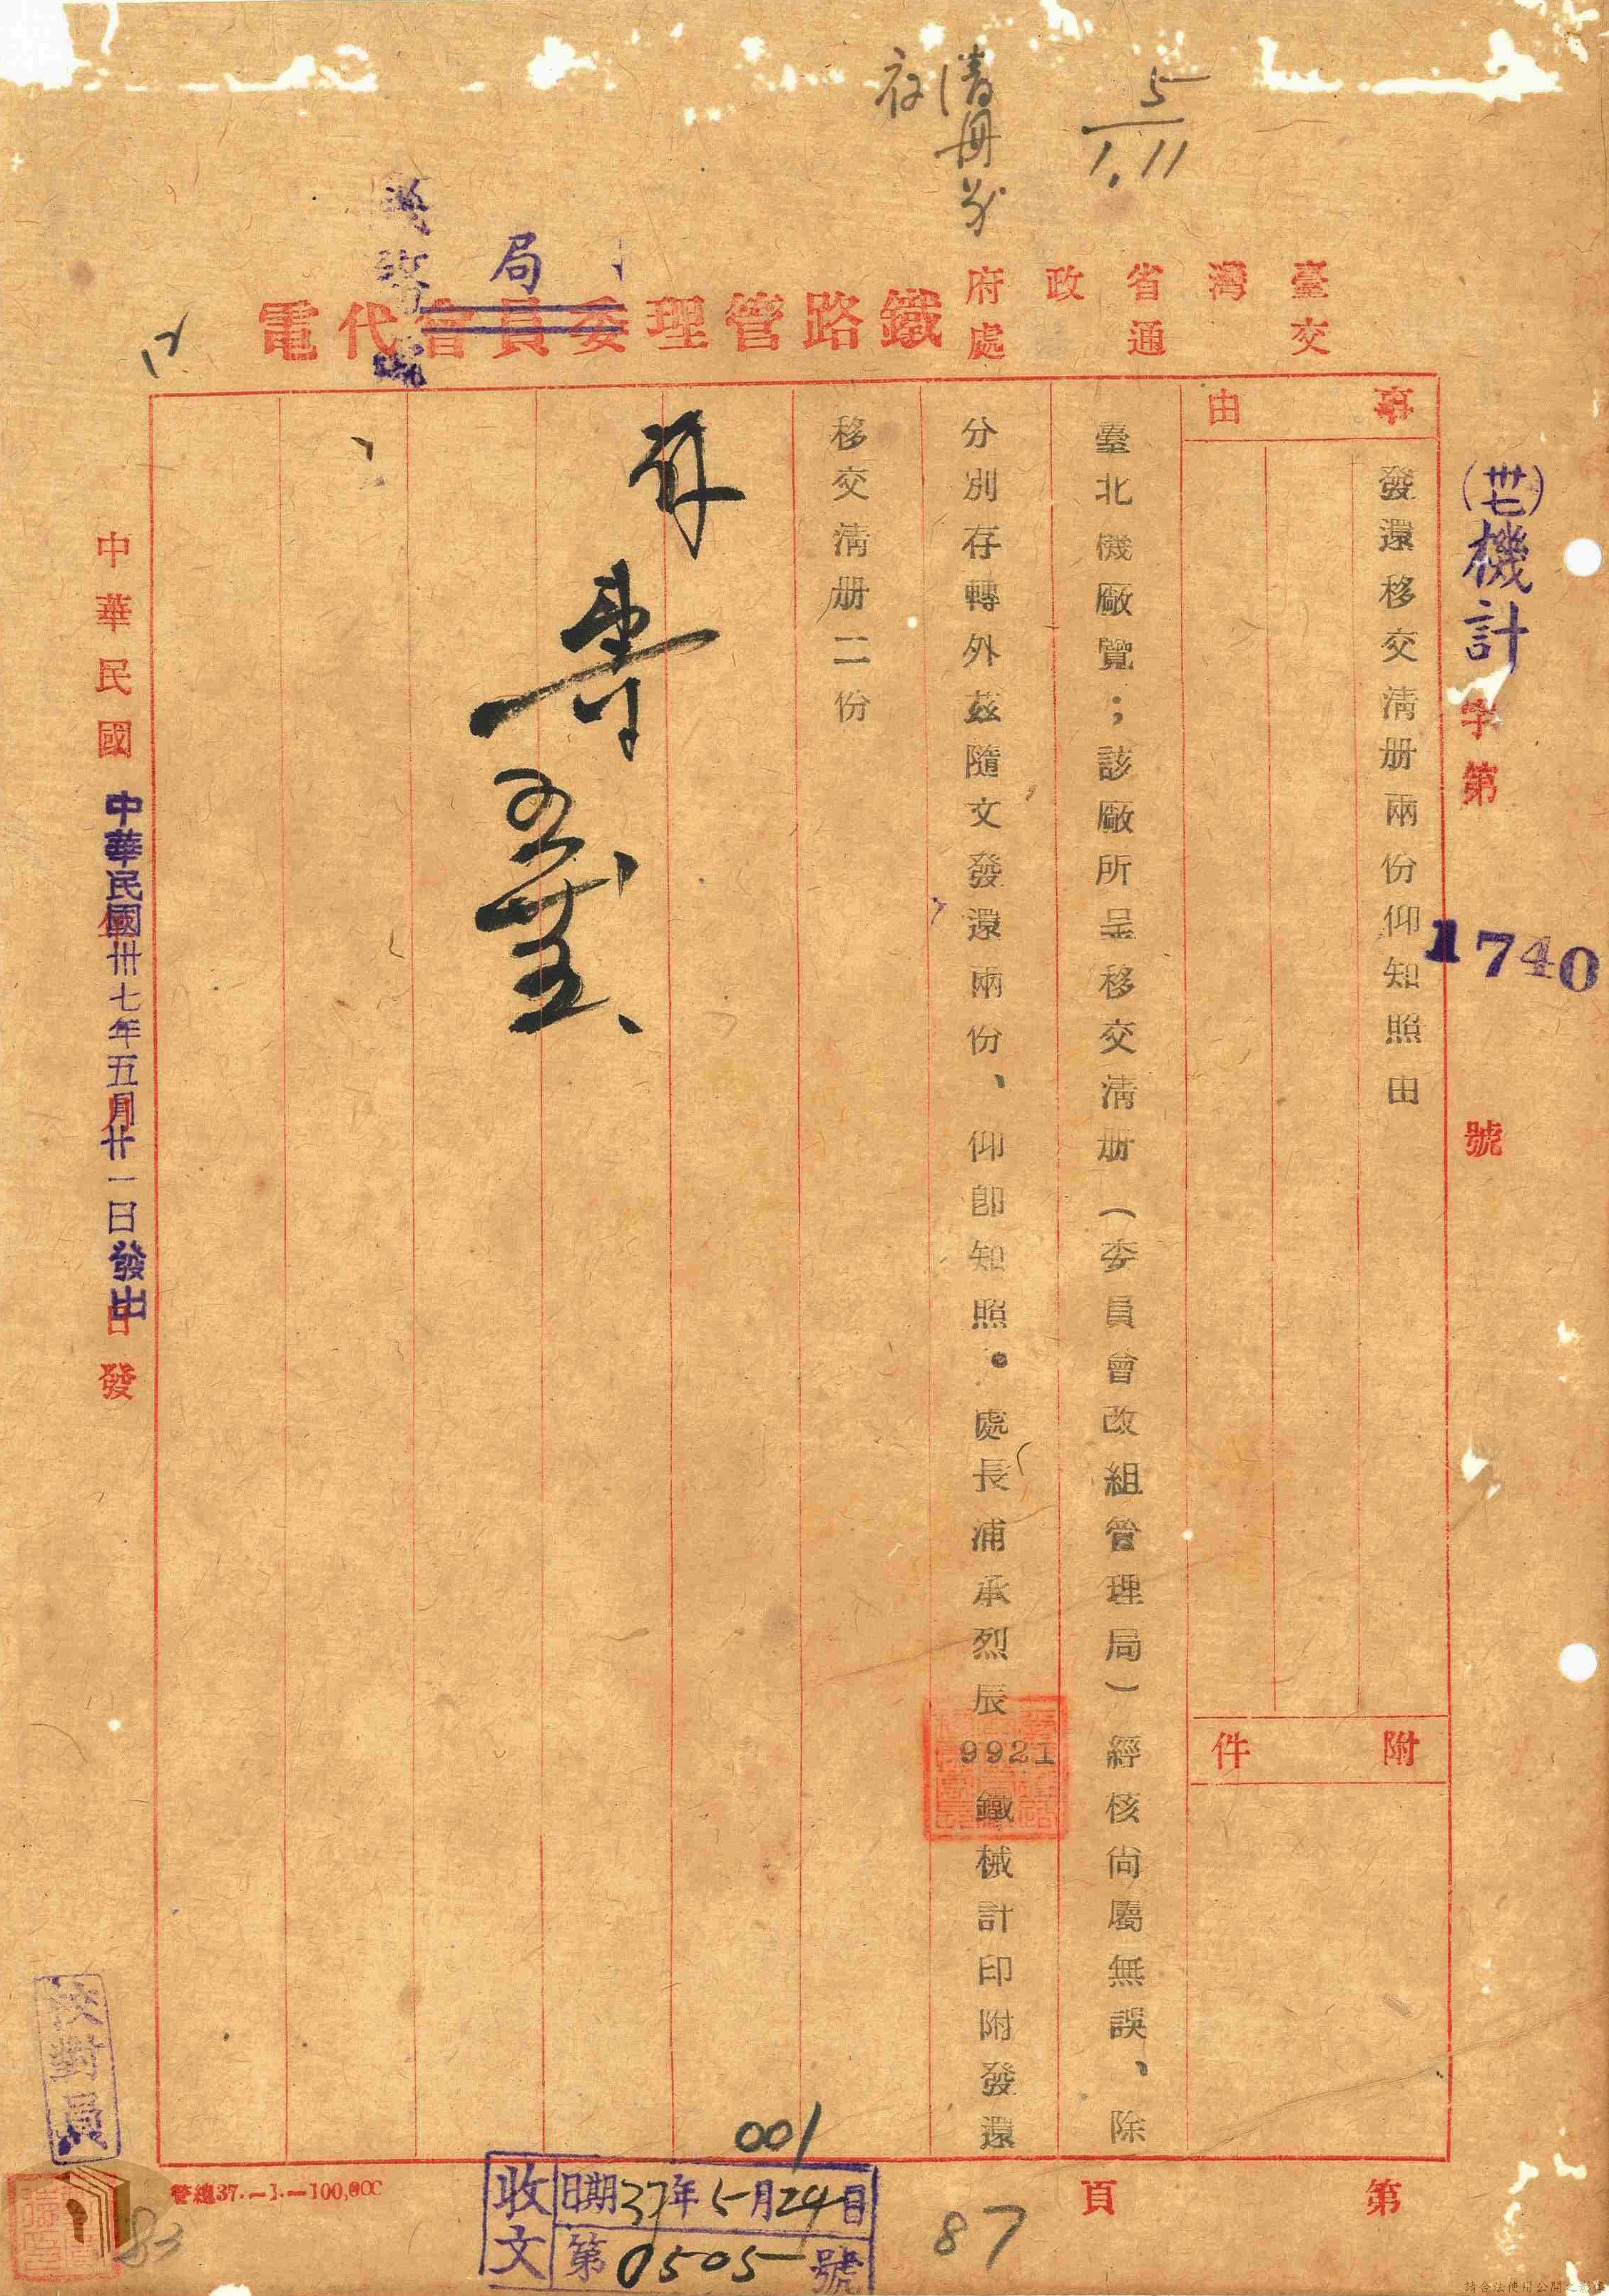 5/1.11
存清冊
臺灣省政府
交通處
鐵路管理委員會代電
局
(卅七)機計字第1740號
事由
發還移交清册兩份仰知照由
附件
臺北機廠覽；該廠所呈移交清册（委員會改組管理局）經核尚屬無誤、除
分別存轉外茲隨文發還兩份、仰卽知照。處長浦承烈辰9921鐵械計印附發還
移交清册二份
存
中華民國
中華民國卅七年五月廿一日發出
年月日發
校對員
001
收文
日期37年5月24日
第0505號
87
第頁
管總37.—1.—100,000
83
請合法使用公開之影像